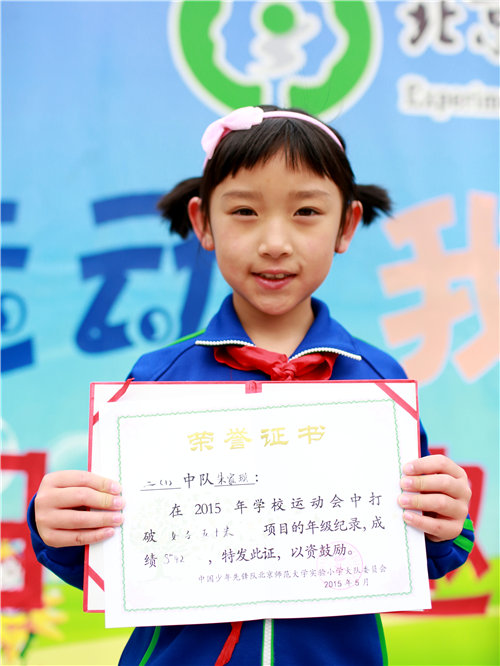 北京
Experim
运动 我
荣誉证书
二(1)中队朱宸颐:
在 2015 年学校运动会中打
破 女子五十米 项目的年级纪录,成
绩 5"42 ,特发此证,以资鼓励。
中国少年先锋队北京师范大学实验小学大队委员会
2015年5月